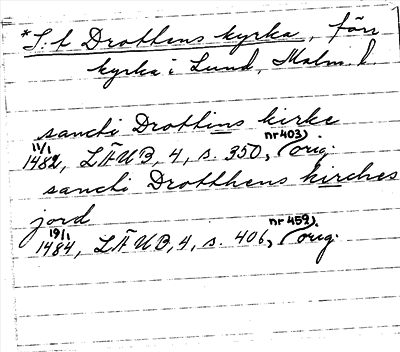 *S:t Drottens kyrka, förr
kyrka i Lund, Malm. l
sancti Drottins kirke
11/1 1482, LÄUB, 4, s. 350, nr 403), orig.
sancti Drotthens kirches
jord
19/1 1484, LÄUB, 4, s. 406, nr 459), orig.